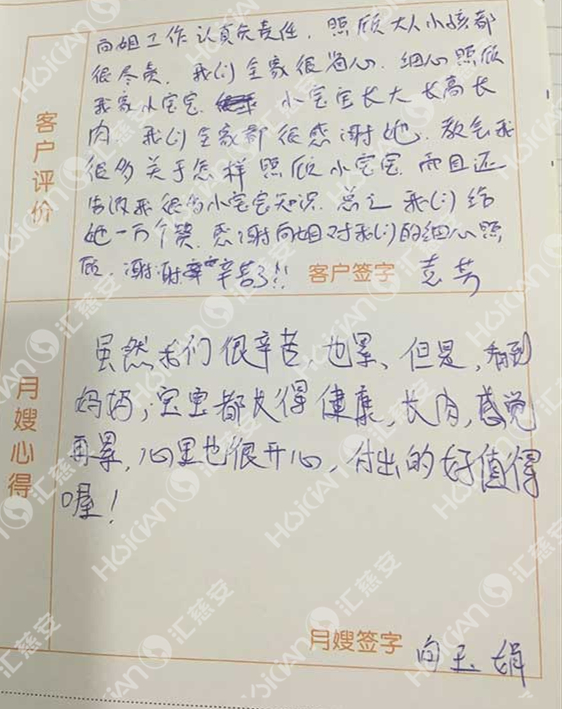 客户评价
向姐工作认真负责任，照顾大人小孩都
很尽责，我们全家很省心，细心照顾
我家小宝宝，小宝宝长大长高长
肉，我们全家都很感谢她，教会我
很多关于怎样照顾小宝宝，而且还
告诉我很多小宝宝知识，总之我们给
她一万个赞，感谢向姐对我们的细心照
顾，谢谢辛苦了!!
客户签字 袁芳
月嫂心得
虽然我们很辛苦，也累、但是，看到
妈妈；宝宝都长得健康，长肉，感觉
再累，心里也很开心，付出的好值得
喔！
月嫂签字 向玉娟
HOICIAN 汇慈安